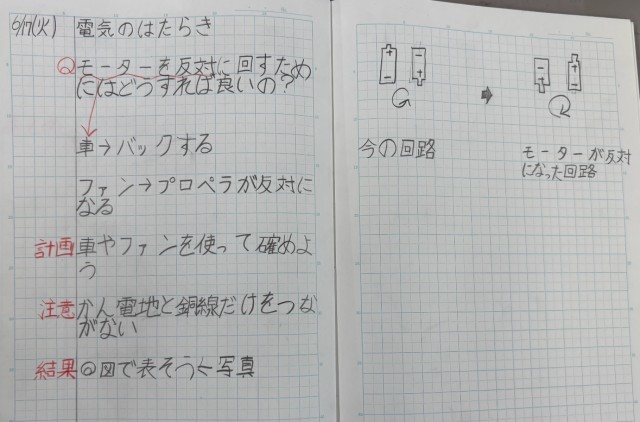 6/17(火) 電気のはたらき
Q モーターを反対に回すため
にはどうすれば良いの?
車→バックする
ファン→プロペラが反対に
なる
計画 車やファンを使って確めよ
う
注意 かん電地と銅線だけをつな
がない
結果 ◎図で表そう←写真
+ -
- +
- +
+ -
今の回路
モーターが反対
になった回路